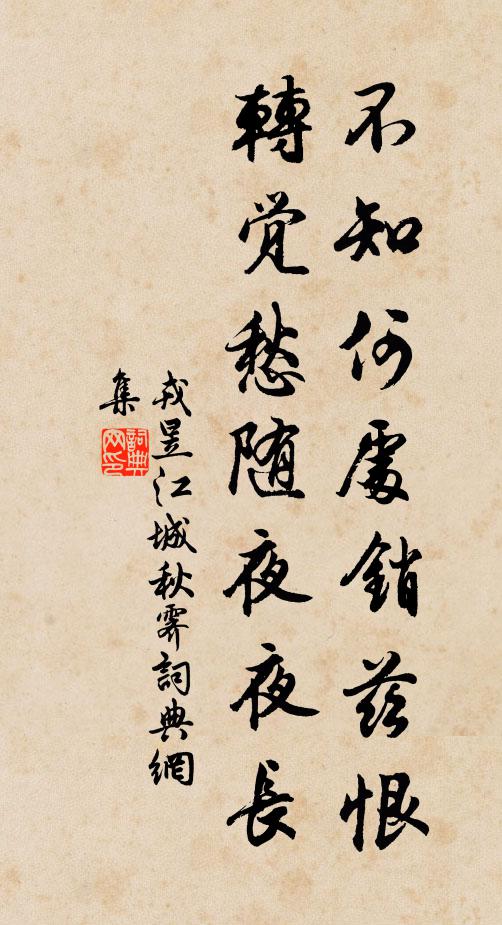 不知何處銷茲恨
轉覺愁随夜夜長
戎昱江城秋霽詞典網
集
詞典
网印